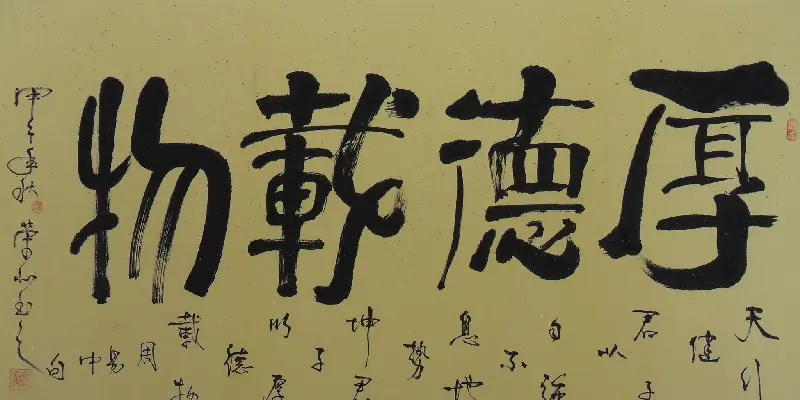 厚德載物
天行
健
君子
以
自強
不
息地
勢
坤君
子
以厚
德
載物
周
易
中
句
年秋